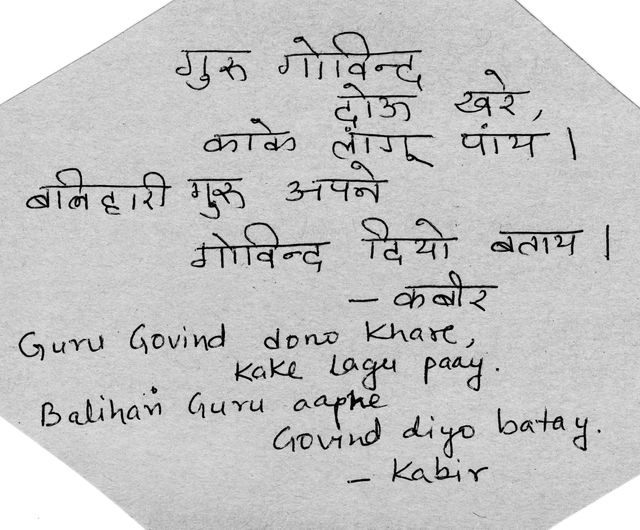 गुरू गोविन्द
दोऊ खरे,
काके लागू पांय।
बलिहारी गुरू अपने
गोविन्द दियो बताय।
– कबीर
Guru Govind dono Khare,
Kake Lagu paay.
Balihari Guru aapne
Govind diyo batay.
– Kabir